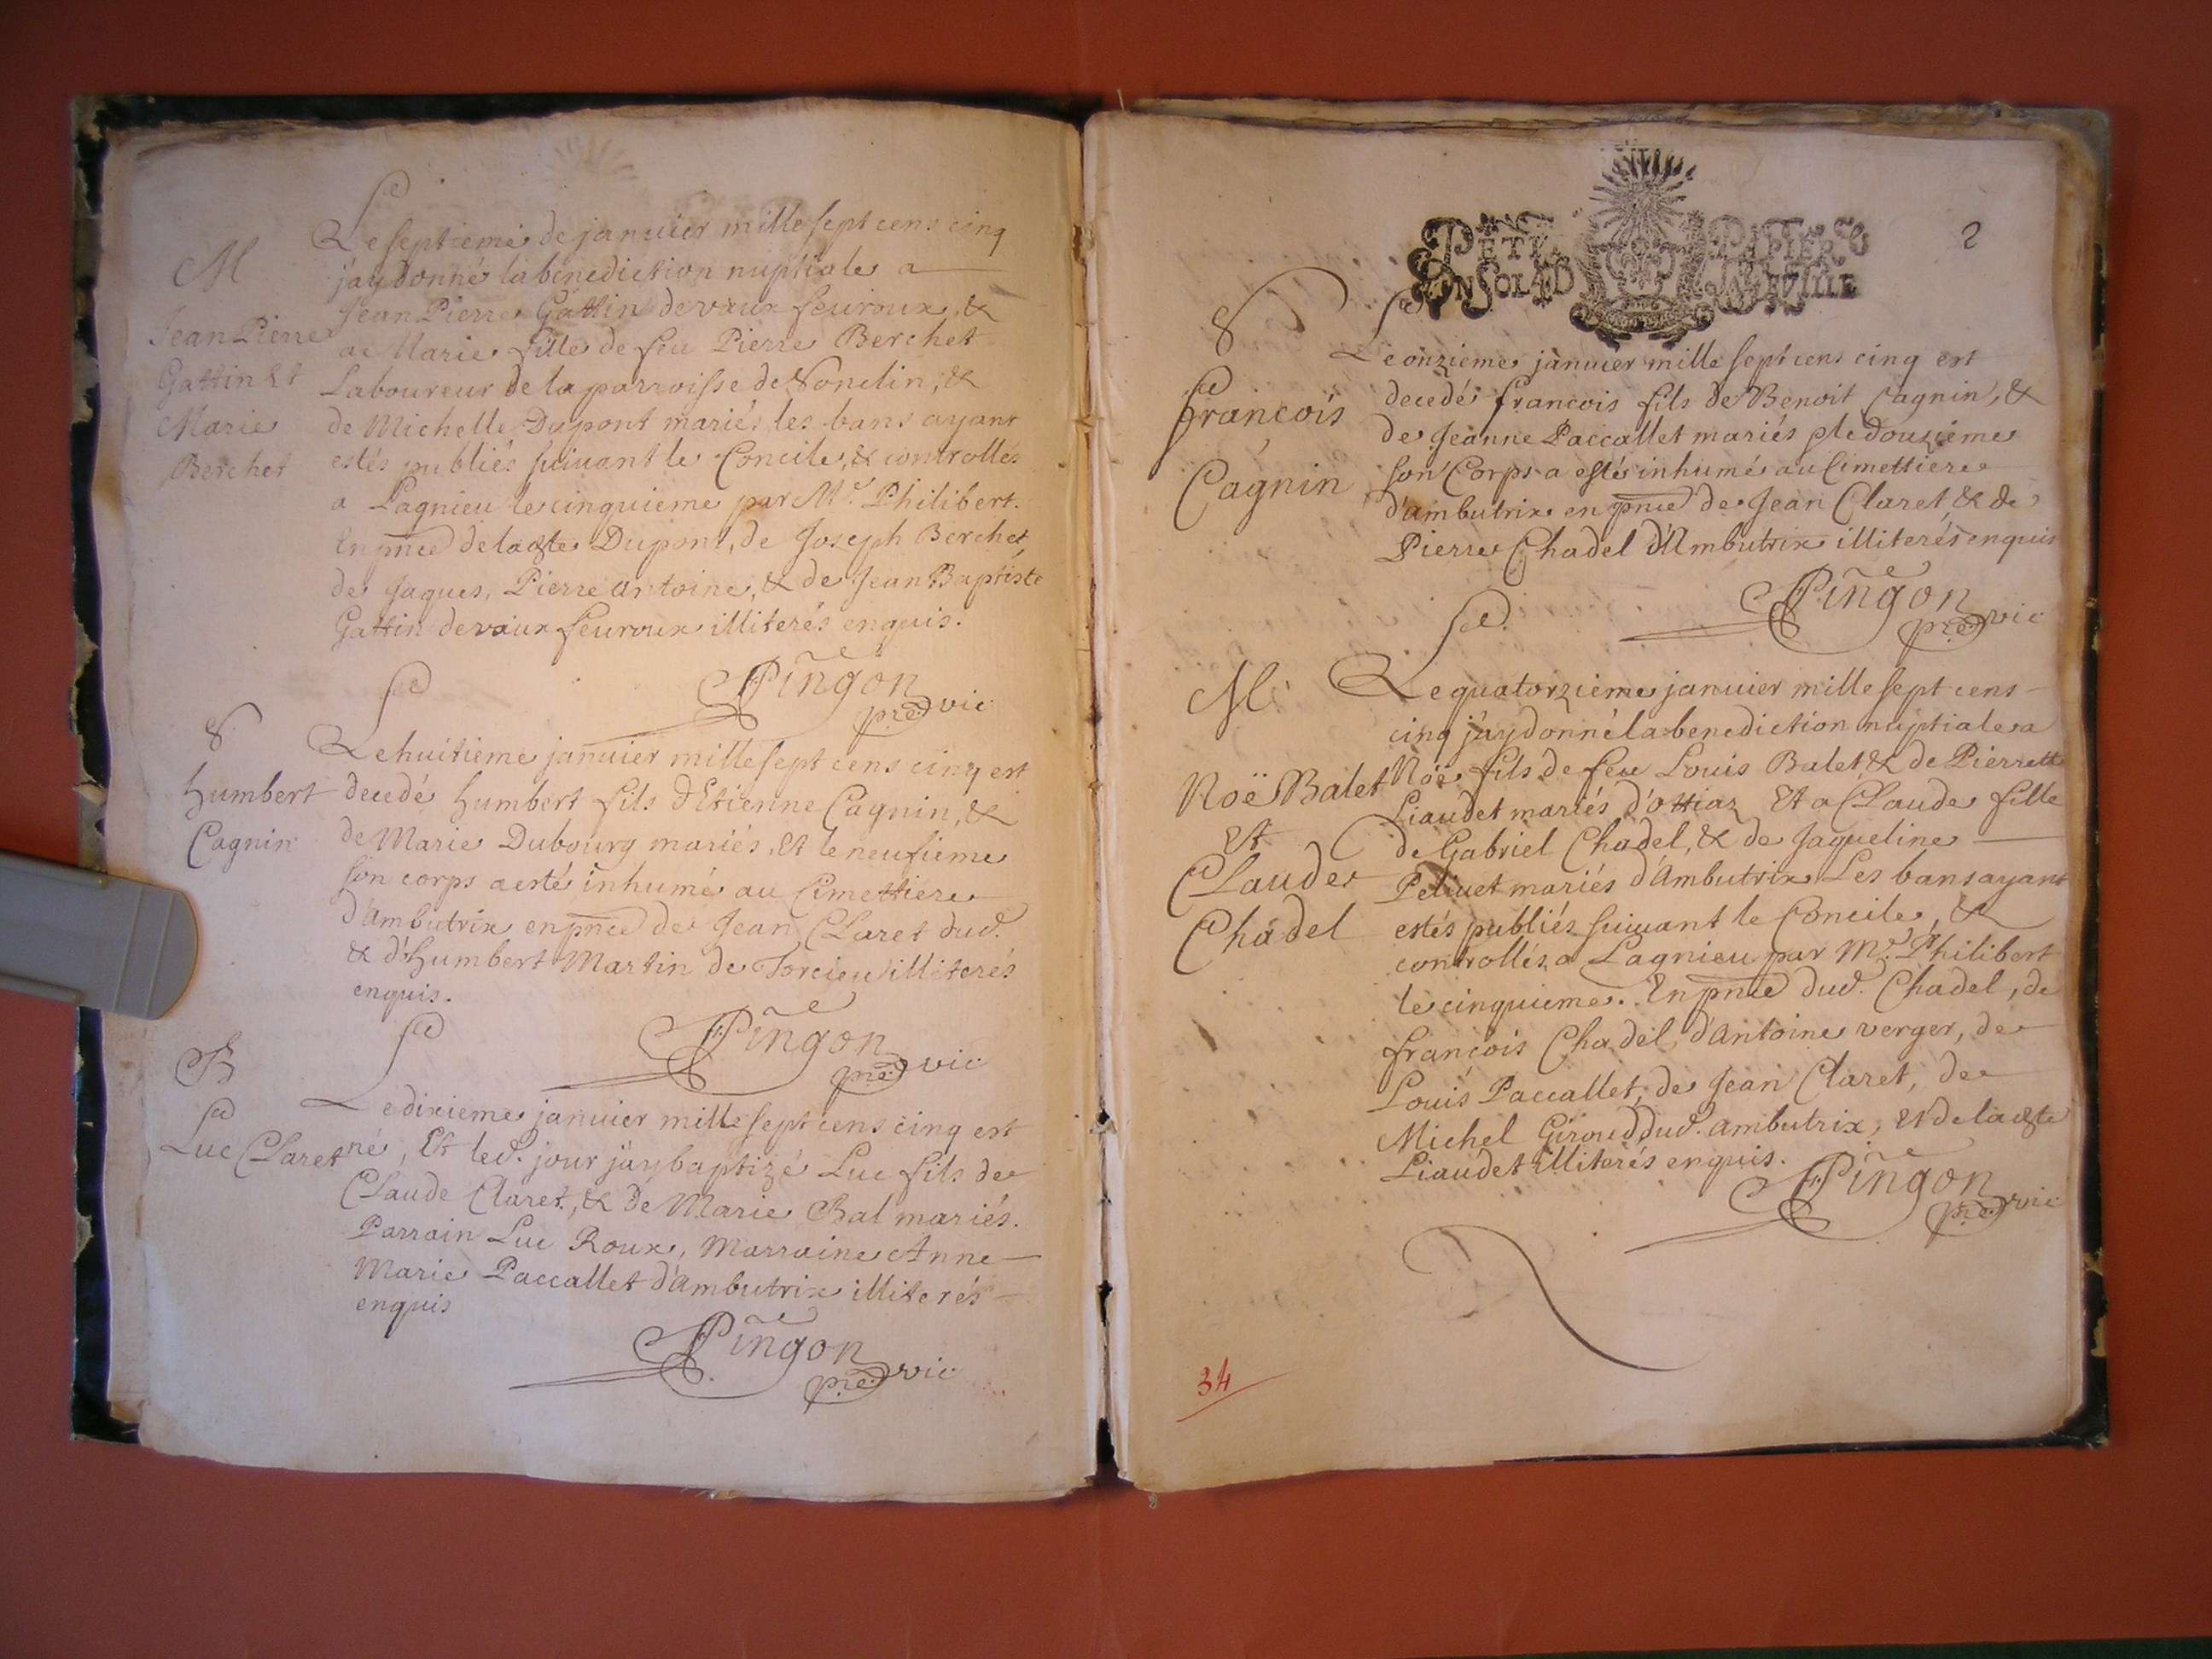 M
Jean Pierre
Gattin Et
Marie
Berchet
Le septieme de janvier mille sept cens cinq
j'ay donné la benediction nuptiale a
Jean Pierre Gattin de vaux feuroux, &
a Marie fille de feu Pierre Berchet
Laboureur de la parroisse de, &
de Michelle Dupont mariés les bans ayant
estés publiés suivant le Concile, & controllés
a Lagnieu le cinquieme par Mr. Philibert.
En pnce de ladte Dupont, de Joseph Berchet,
de Jaques, Pierre antoine, & de Jean Baptiste
Gattin de vaux feuroux illiterés enquis.
Pingon
pre vic
8
humbert
Cagnin
Le huitieme janvier mille sept cens cinq est
decedé humbert fils d'Etienne Cagnin, &
de Marie Dubourg mariés, Et le neufieme
son corps a esté inhumé au Cimettiere
d'Ambutrix en pnce de Jean Claret dud.
& d'humbert Martin de Torcieu illiterés
enquis.
Pingon
pre vic
B
Luc Claret
Le dixieme janvier mille sept cens cinq est
né, Et led. jour j'ay baptizé Luc fils de
Claude Claret, & de Marie Bal mariés.
Parrain Luc Roux, Marraine Anne
Marie Paccallet d'ambutrix illiterés
enquis
Pingon
pre vic
PETIT PAPIER
UN SOL 4 D LA FEUILLE
2
8
francois
Cagnin
Le onzieme janvier mille sept cens cinq est
decedé francois fils de Benoit Cagnin, &
de Jeanne Paccallet mariés, le douzieme
son Corps a esté inhumé au Cimettiere
d'ambutrix en pnce de Jean Claret & de
Pierre Chadel d'Ambutrix illiterés enquis
Pingon
pre vic
M
Noë Balet
Et
Claude
Chadel
Le quatorzieme janvier mille sept cens
cinq j'ay donné la benediction nuptiale a
Noë fils de feu Louis Balet & de Pierrette
Liaudet mariés d'ottiaz Et a Claude fille
de Gabriel Chadel, & de Jaqueline
Peliuet mariés d'Ambutrix Les bans ayant
estés publiés suivant le Concile, &
controllés a Lagnieu par Mr. Philibert
le cinquieme. En pnce dud. Chadel, de
francois Chadel, d'Antoine verger, de
Louis Paccallet, de Jean Claret, de
Michel Giroud dud. ambutrix, Et de ladte
Liaudet illiterés enquis.
Pingon
pre vic
34